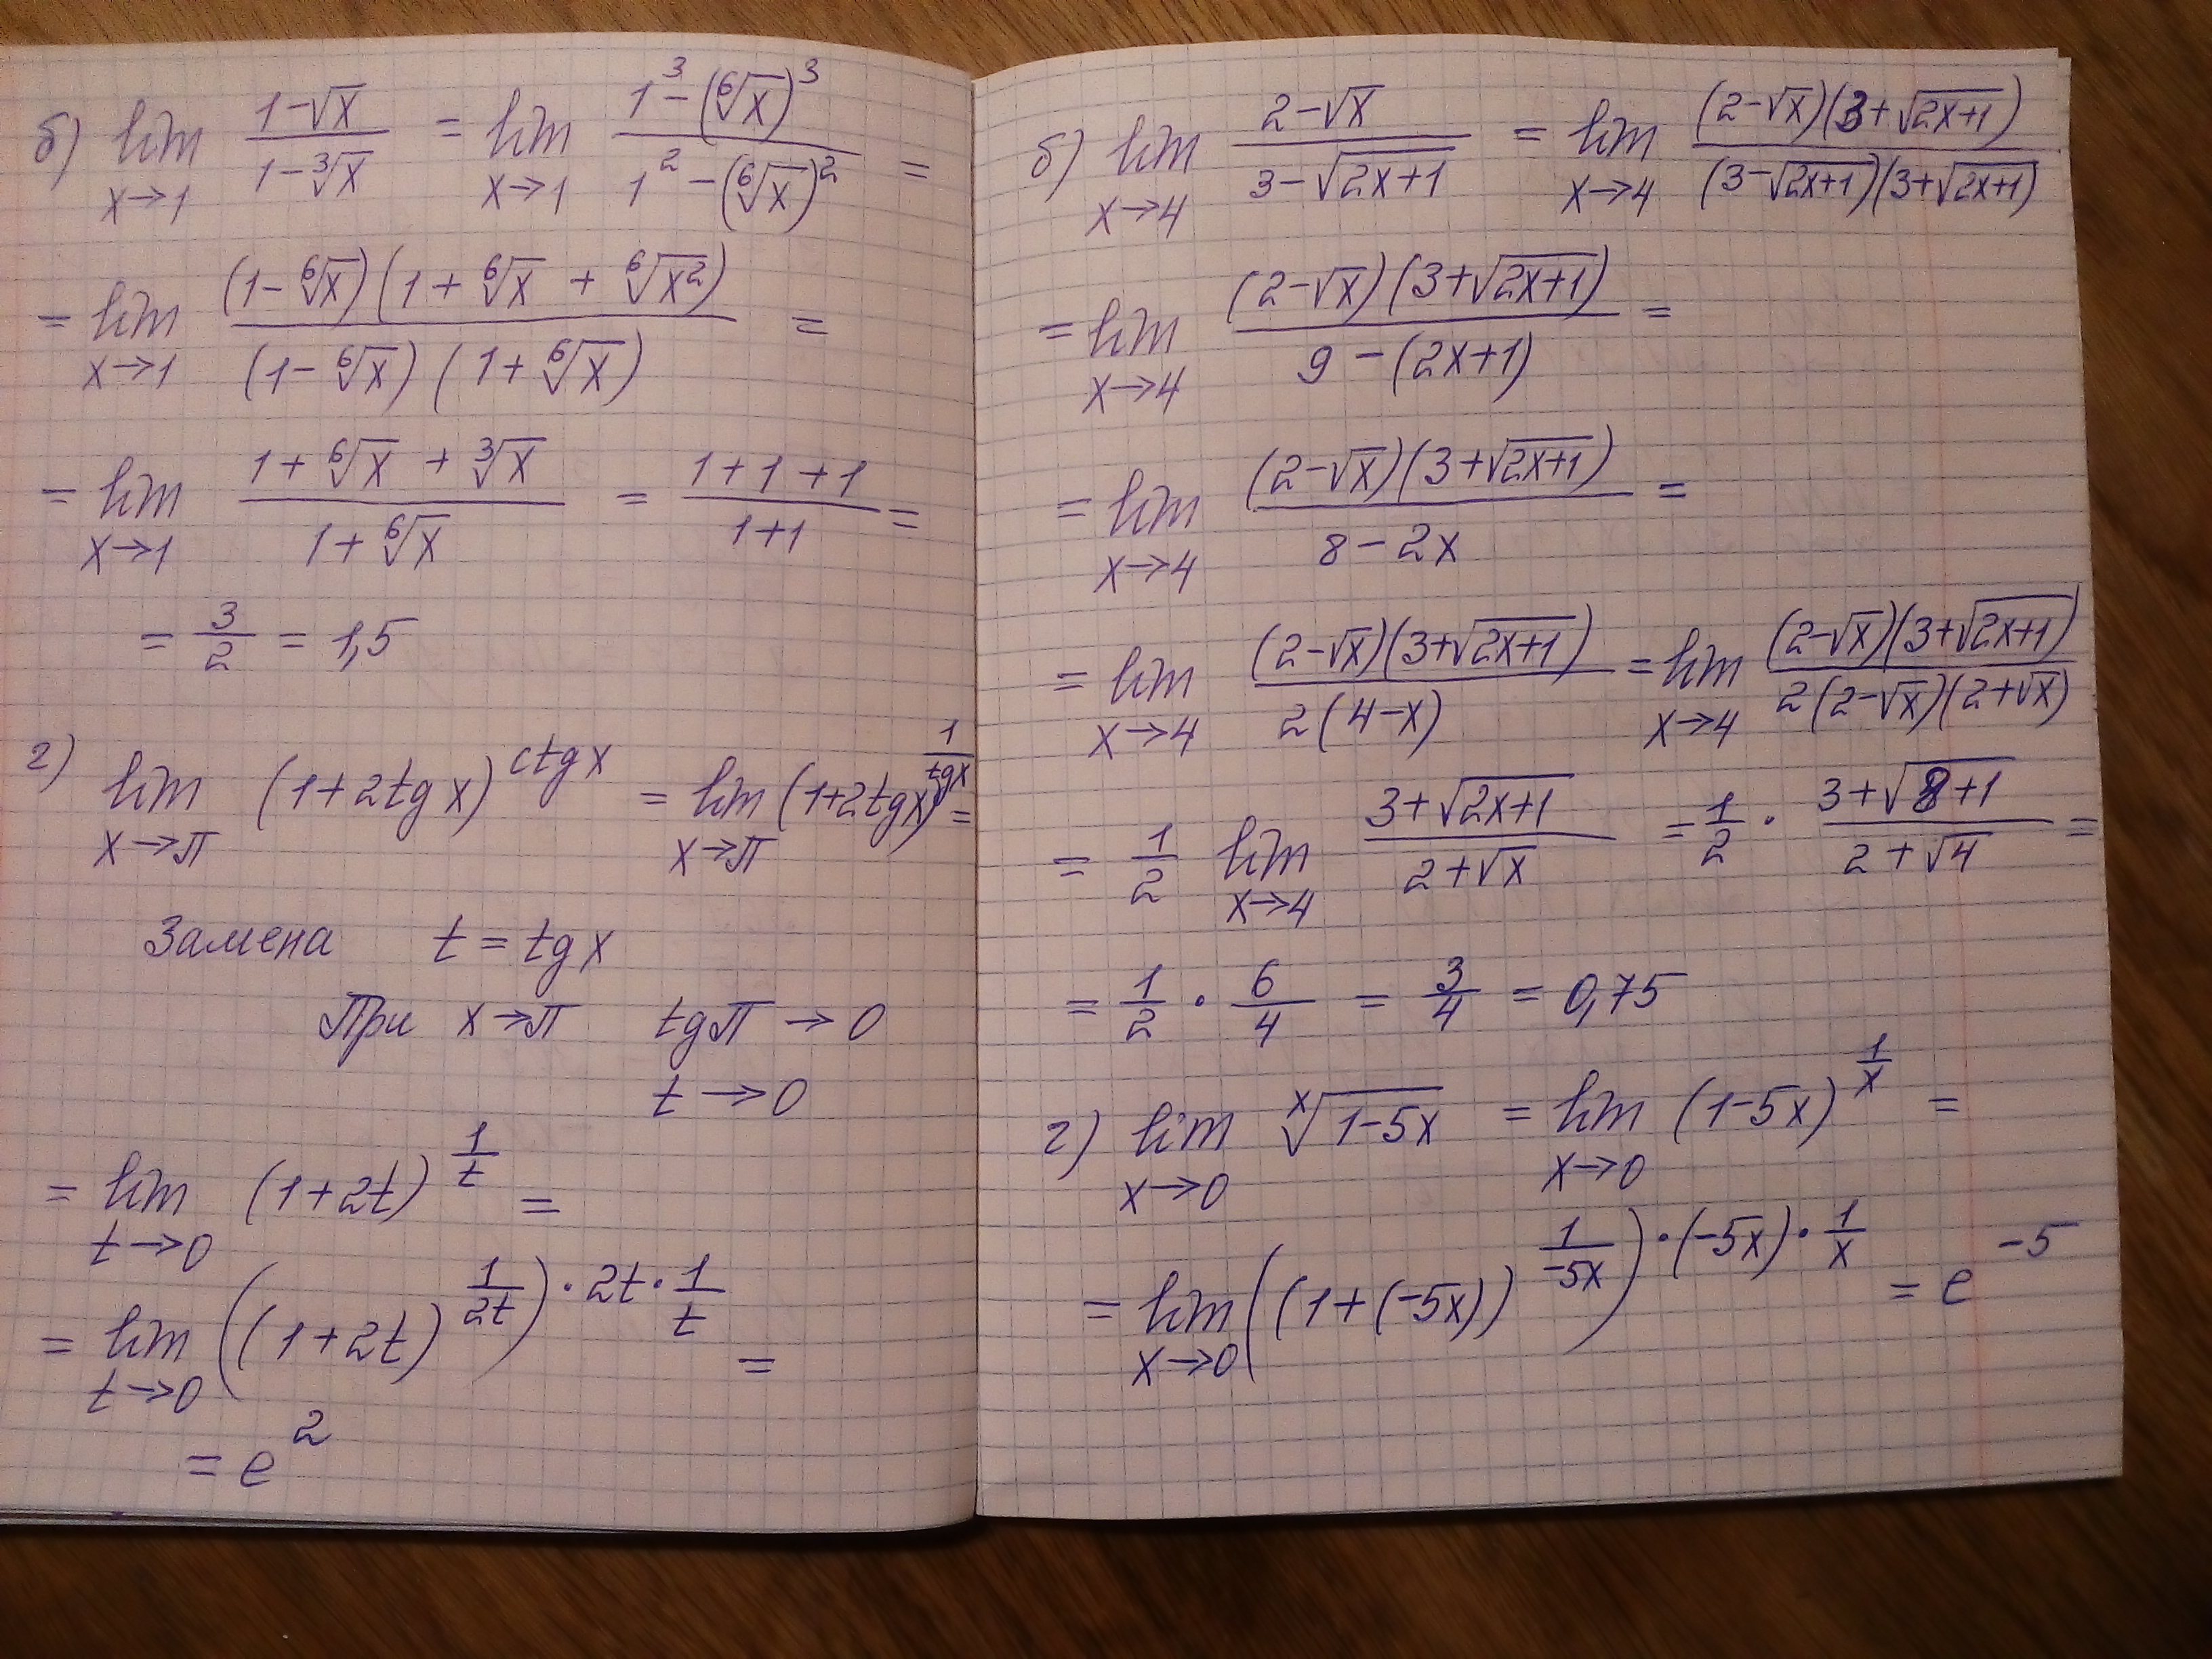 б) lim x→1 (1-√x)/(1-∛x) = lim x→1 (1³-(⁶√x)³)/(1²-(⁶√x)²) =
= lim x→1 ((1-⁶√x)(1+⁶√x+⁶√x²))/((1-⁶√x)(1+⁶√x)) =
= lim x→1 (1+⁶√x+³√x)/(1+⁶√x) = (1+1+1)/(1+1) =
= 3/2 = 1,5
г) lim x→π (1+2tg x)^(ctg x) = lim x→π (1+2tg x)^(1/tg x) =
Замена t = tg x
При x→π tg π → 0
t → 0
= lim t→0 (1+2t)^(1/t) =
= lim t→0 ((1+2t)^(1/2t))^(·2t·1/t) =
= e²
б) lim x→4 (2-√x)/(3-√(2x+1)) = lim x→4 ((2-√x)(3+√(2x+1)))/((3-√(2x+1))(3+√(2x+1)))
= lim x→4 ((2-√x)(3+√(2x+1)))/(9-(2x+1)) =
= lim x→4 ((2-√x)(3+√(2x+1)))/(8-2x) =
= lim x→4 ((2-√x)(3+√(2x+1)))/(2(4-x)) = lim x→4 ((2-√x)(3+√(2x+1)))/(2(2-√x)(2+√x))
= 1/2 lim x→4 (3+√(2x+1))/(2+√x) = 1/2 · (3+√(8+1))/(2+√4) =
= 1/2 · 6/4 = 3/4 = 0,75
г) lim x→0 ˣ√(1-5x) = lim x→0 (1-5x)^(1/x) =
= lim x→0 ((1+(-5x))^(1/-5x))^(·(-5x)·1/x) = e⁻⁵